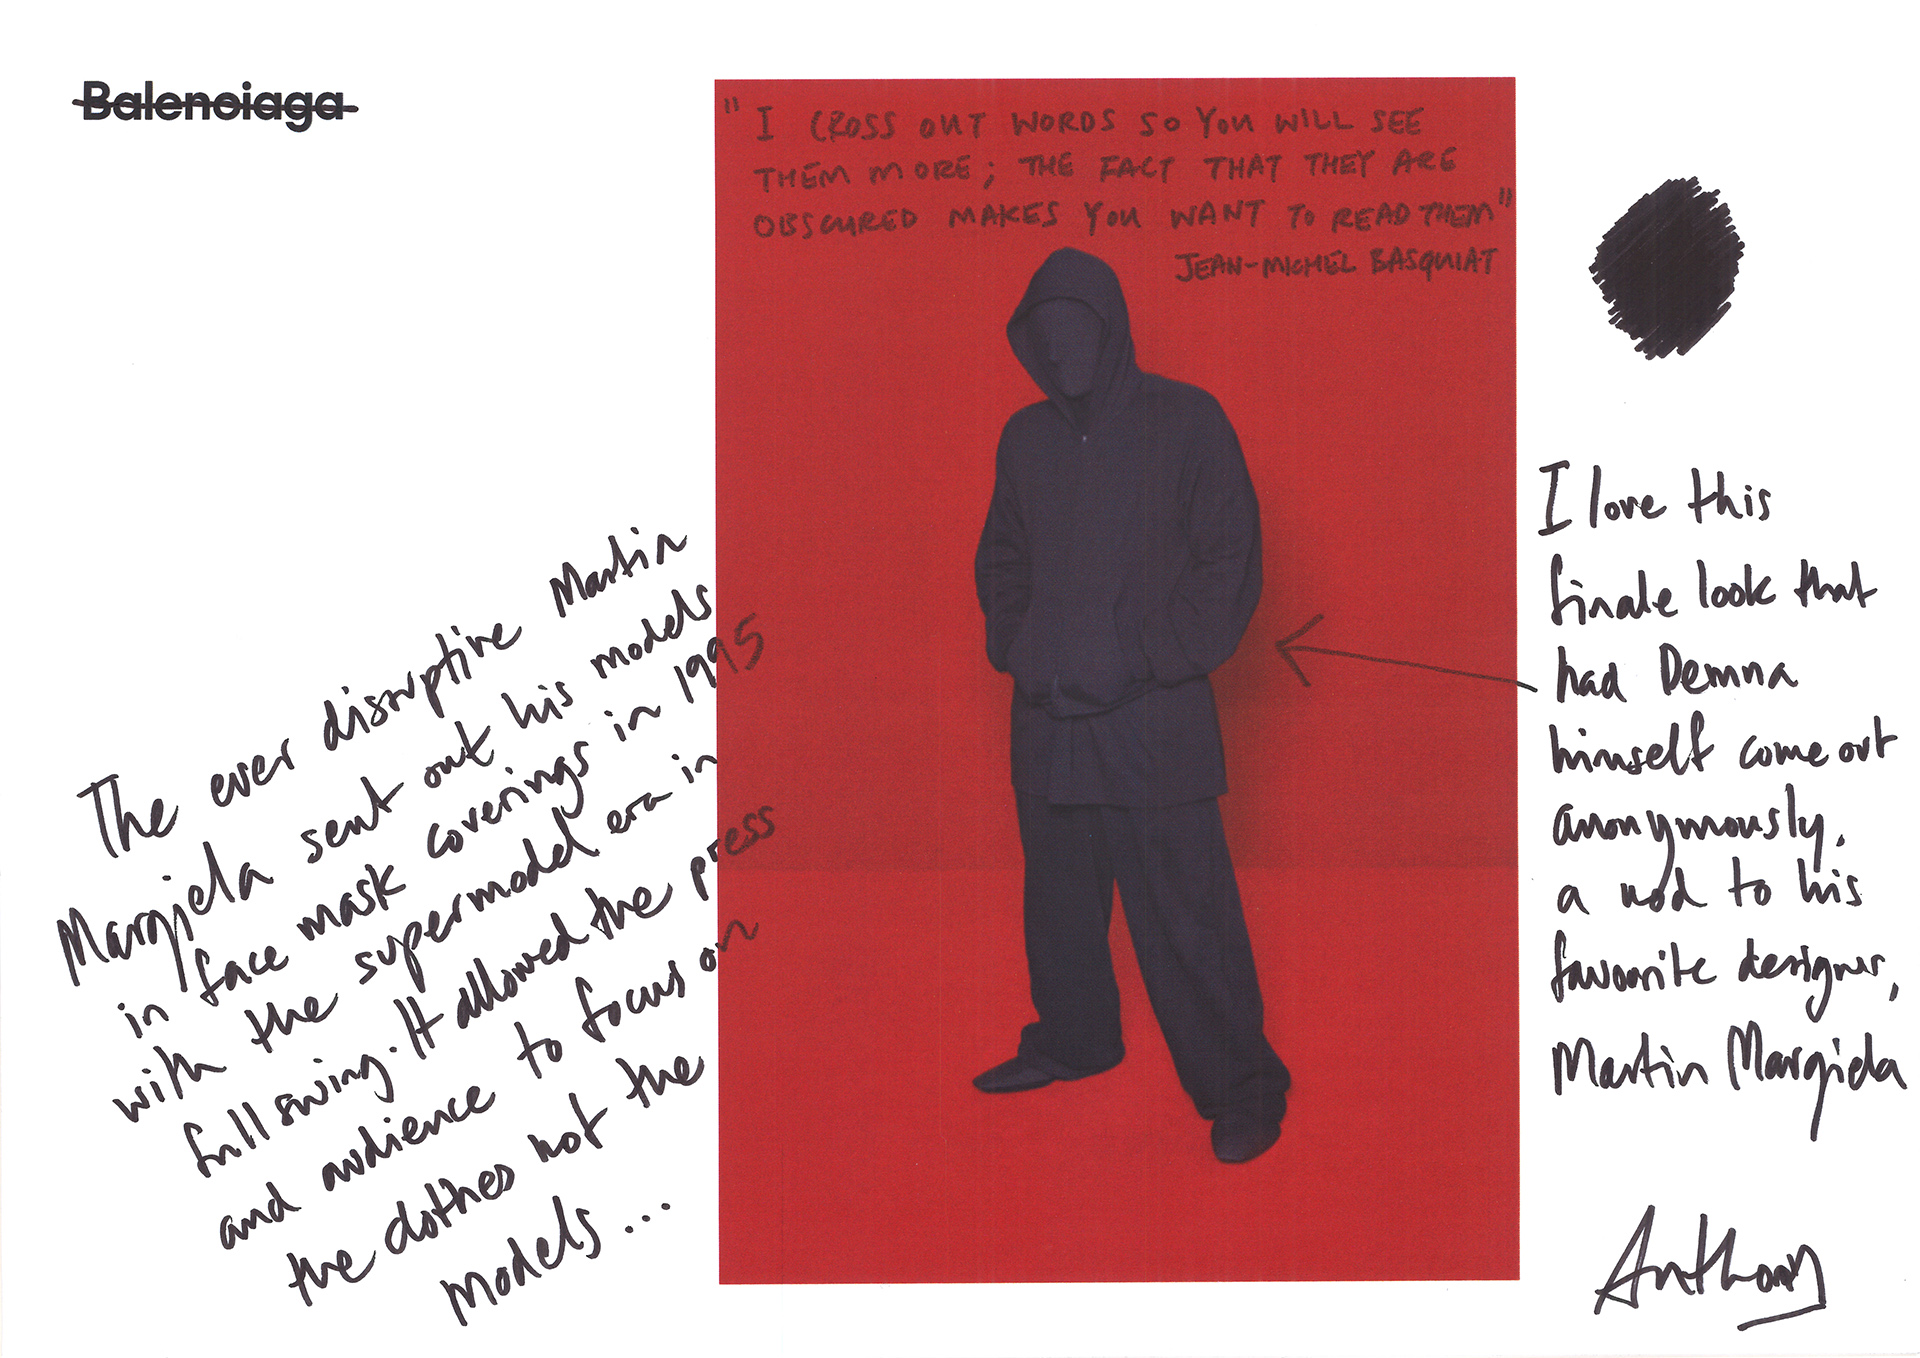 Balenciaga
" I CROSS OUT WORDS SO YOU WILL SEE
THEM MORE; THE FACT THAT THEY ARE
OBSCURED MAKES YOU WANT TO READ THEM"
JEAN-MICHEL BASQUIAT
The ever disruptive Martin
Margiela sent out his models
in face mask coverings in 1995
with the supermodel era in
full swing. It allowed the press
and audience to focus on
the clothes not the
models...
I love this
finale look that
had Demna
himself come out
anonymously,
a nod to his
favourite designer,
Martin Margiela
Anthony